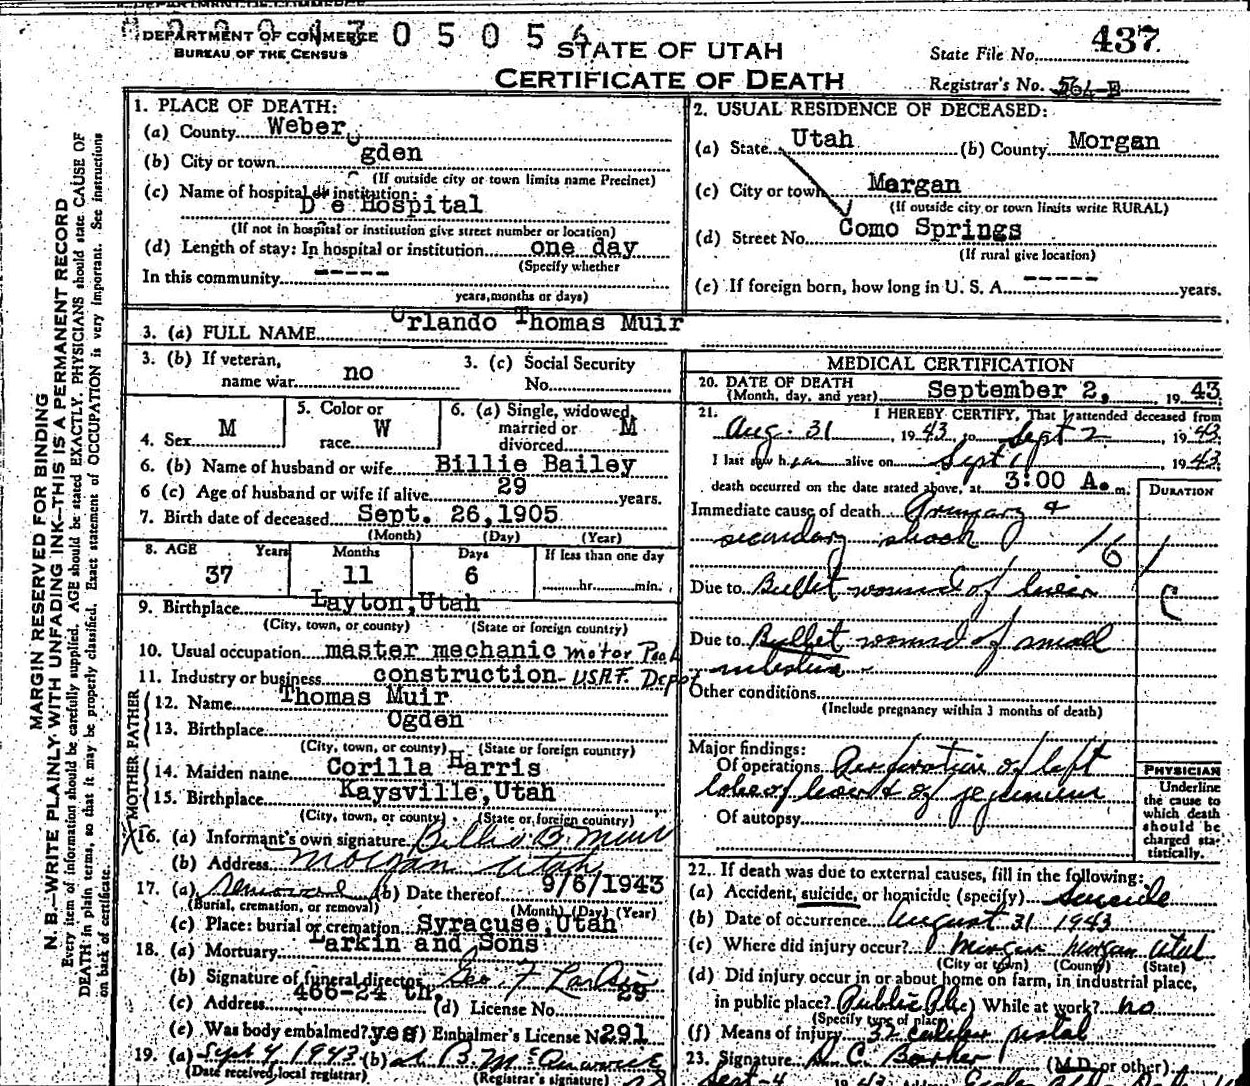 DEPARTMENT OF COMMERCE
BUREAU OF THE CENSUS
STATE OF UTAH
CERTIFICATE OF DEATH
State File No. 437
Registrar's No. 564-B
MARGIN RESERVED FOR BINDING
N. B.—WRITE PLAINLY WITH UNFADING INK—THIS IS A PERMANENT RECORD
Every item of information should be carefully supplied. AGE should be stated EXACTLY. PHYSICIANS should state CAUSE OF
DEATH in plain terms, so that it may be properly classified. Exact statement of OCCUPATION is very important. See instructions
on back of certificate.
1. PLACE OF DEATH:
(a) County Weber
(b) City or town Ogden
(If outside city or town limits name Precinct)
(c) Name of hospital or institution:
D e Hospital
(If not in hospital or institution give street number or location)
(d) Length of stay: In hospital or institution one day
(Specify whether
In this community -----
years, months or days)
2. USUAL RESIDENCE OF DECEASED:
(a) State Utah (b) County Morgan
(c) City or town Margan
(If outside city or town limits write RURAL)
(d) Street No. Como Springs
(If rural give location)
(e) If foreign born, how long in U. S. A. ----- years.
3. (a) FULL NAME Orlando Thomas Muir
3. (b) If veteran,
name war no
3. (c) Social Security
No.
4. Sex M
5. Color or
race W
6. (a) Single, widowed,
married or
divorced M
6. (b) Name of husband or wife Billie Bailey
6 (c) Age of husband or wife if alive 29 years.
7. Birth date of deceased Sept. 26,1905
(Month) (Day) (Year)
8. AGE Years Months Days If less than one day
37 11 6 hr. min.
9. Birthplace Layton,Utah
(City, town, or county) (State or foreign country)
10. Usual occupation master mechanic Motor Pool
11. Industry or business construction- USAF. Depot
FATHER
12. Name Thomas Muir
13. Birthplace Ogden
(City, town, or county) (State or foreign country)
MOTHER
14. Maiden name Corilla Harris
15. Birthplace Kaysville,Utah
(City, town, or county) (State or foreign country)
X16. (a) Informant's own signature Billie B. Muir
(b) Address Morgan Utah
17. (a) Removal (b) Date thereof 9/6/1943
(Burial, cremation, or removal) (Month) (Day) (Year)
(c) Place: burial or cremation Syracuse,Utah
18. (a) Mortuary Larkin and Sons
(b) Signature of funeral director Geo. F Larkin
(c) Address 466-24 th. (d) License No. 29
(e) Was body embalmed? yes (f) Embalmer's License No. 291
19. (a) Sept 4 1943 (b)
(Date received local registrar) (Registrar's signature)
MEDICAL CERTIFICATION
20. DATE OF DEATH
(Month, day, and year) September 2, 1943
21. I HEREBY CERTIFY, That I attended deceased from
Aug. 31, 1943 to Sept 2, 1943
I last saw him alive on Sept 1 1943
death occurred on the date stated above, at 3:00 A. m.
DURATION
Immediate cause of death Primary &
secondary shock
Due to Bullet wound of liver
Due to Bullet wound of small
intestine
Other conditions
(Include pregnancy within 3 months of death)
Major findings:
Of operations Perforation of left
lobe of liver & of jejunum
Of autopsy
PHYSICIAN
Underline
the cause to
which death
should be
charged sta-
tistically.
22. If death was due to external causes, fill in the following:
(a) Accident, suicide, or homicide (specify) Suicide
(b) Date of occurrence August 31 1943
(c) Where did injury occur? Morgan Morgan Utah
(City or town) (County) (State)
(d) Did injury occur in or about home on farm, in industrial place,
in public place? Public Pl (e) While at work? no
(Specify type of place)
(f) Means of injury 32 caliber pistol
23. Signature (M.D. or other)
Sept-4 1943